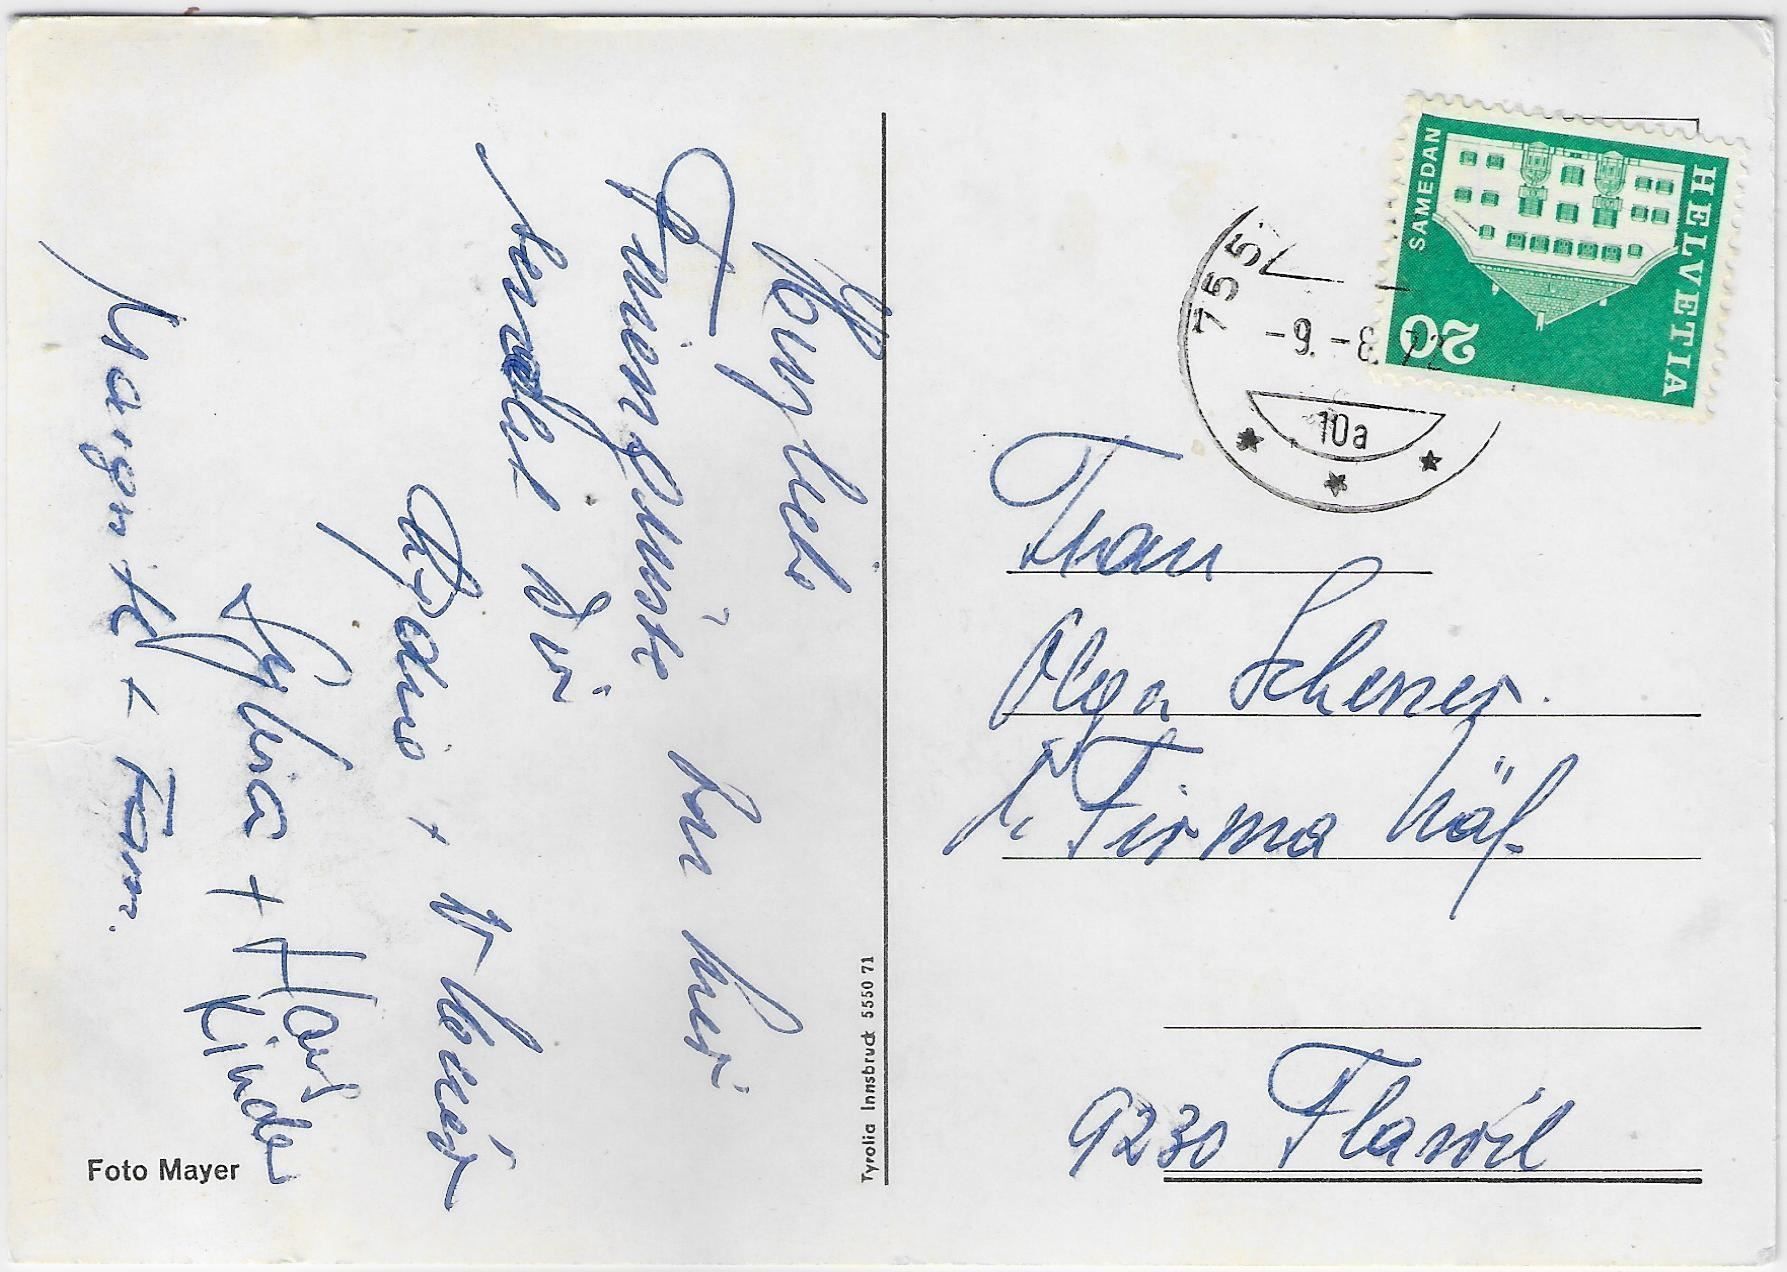 Herzliche
Feriengrüsse von hier
sendet Dir
+
Sylvia + Hans
Kinder
Margrit + Fam.
Foto Mayer
Tyrolia Innsbruck 5550 71
HELVETIA
SAMEDAN
20
755
-9.-8.72
10a
Frau
Olga Scherrer
i. Firma Näf
9230 Flawil